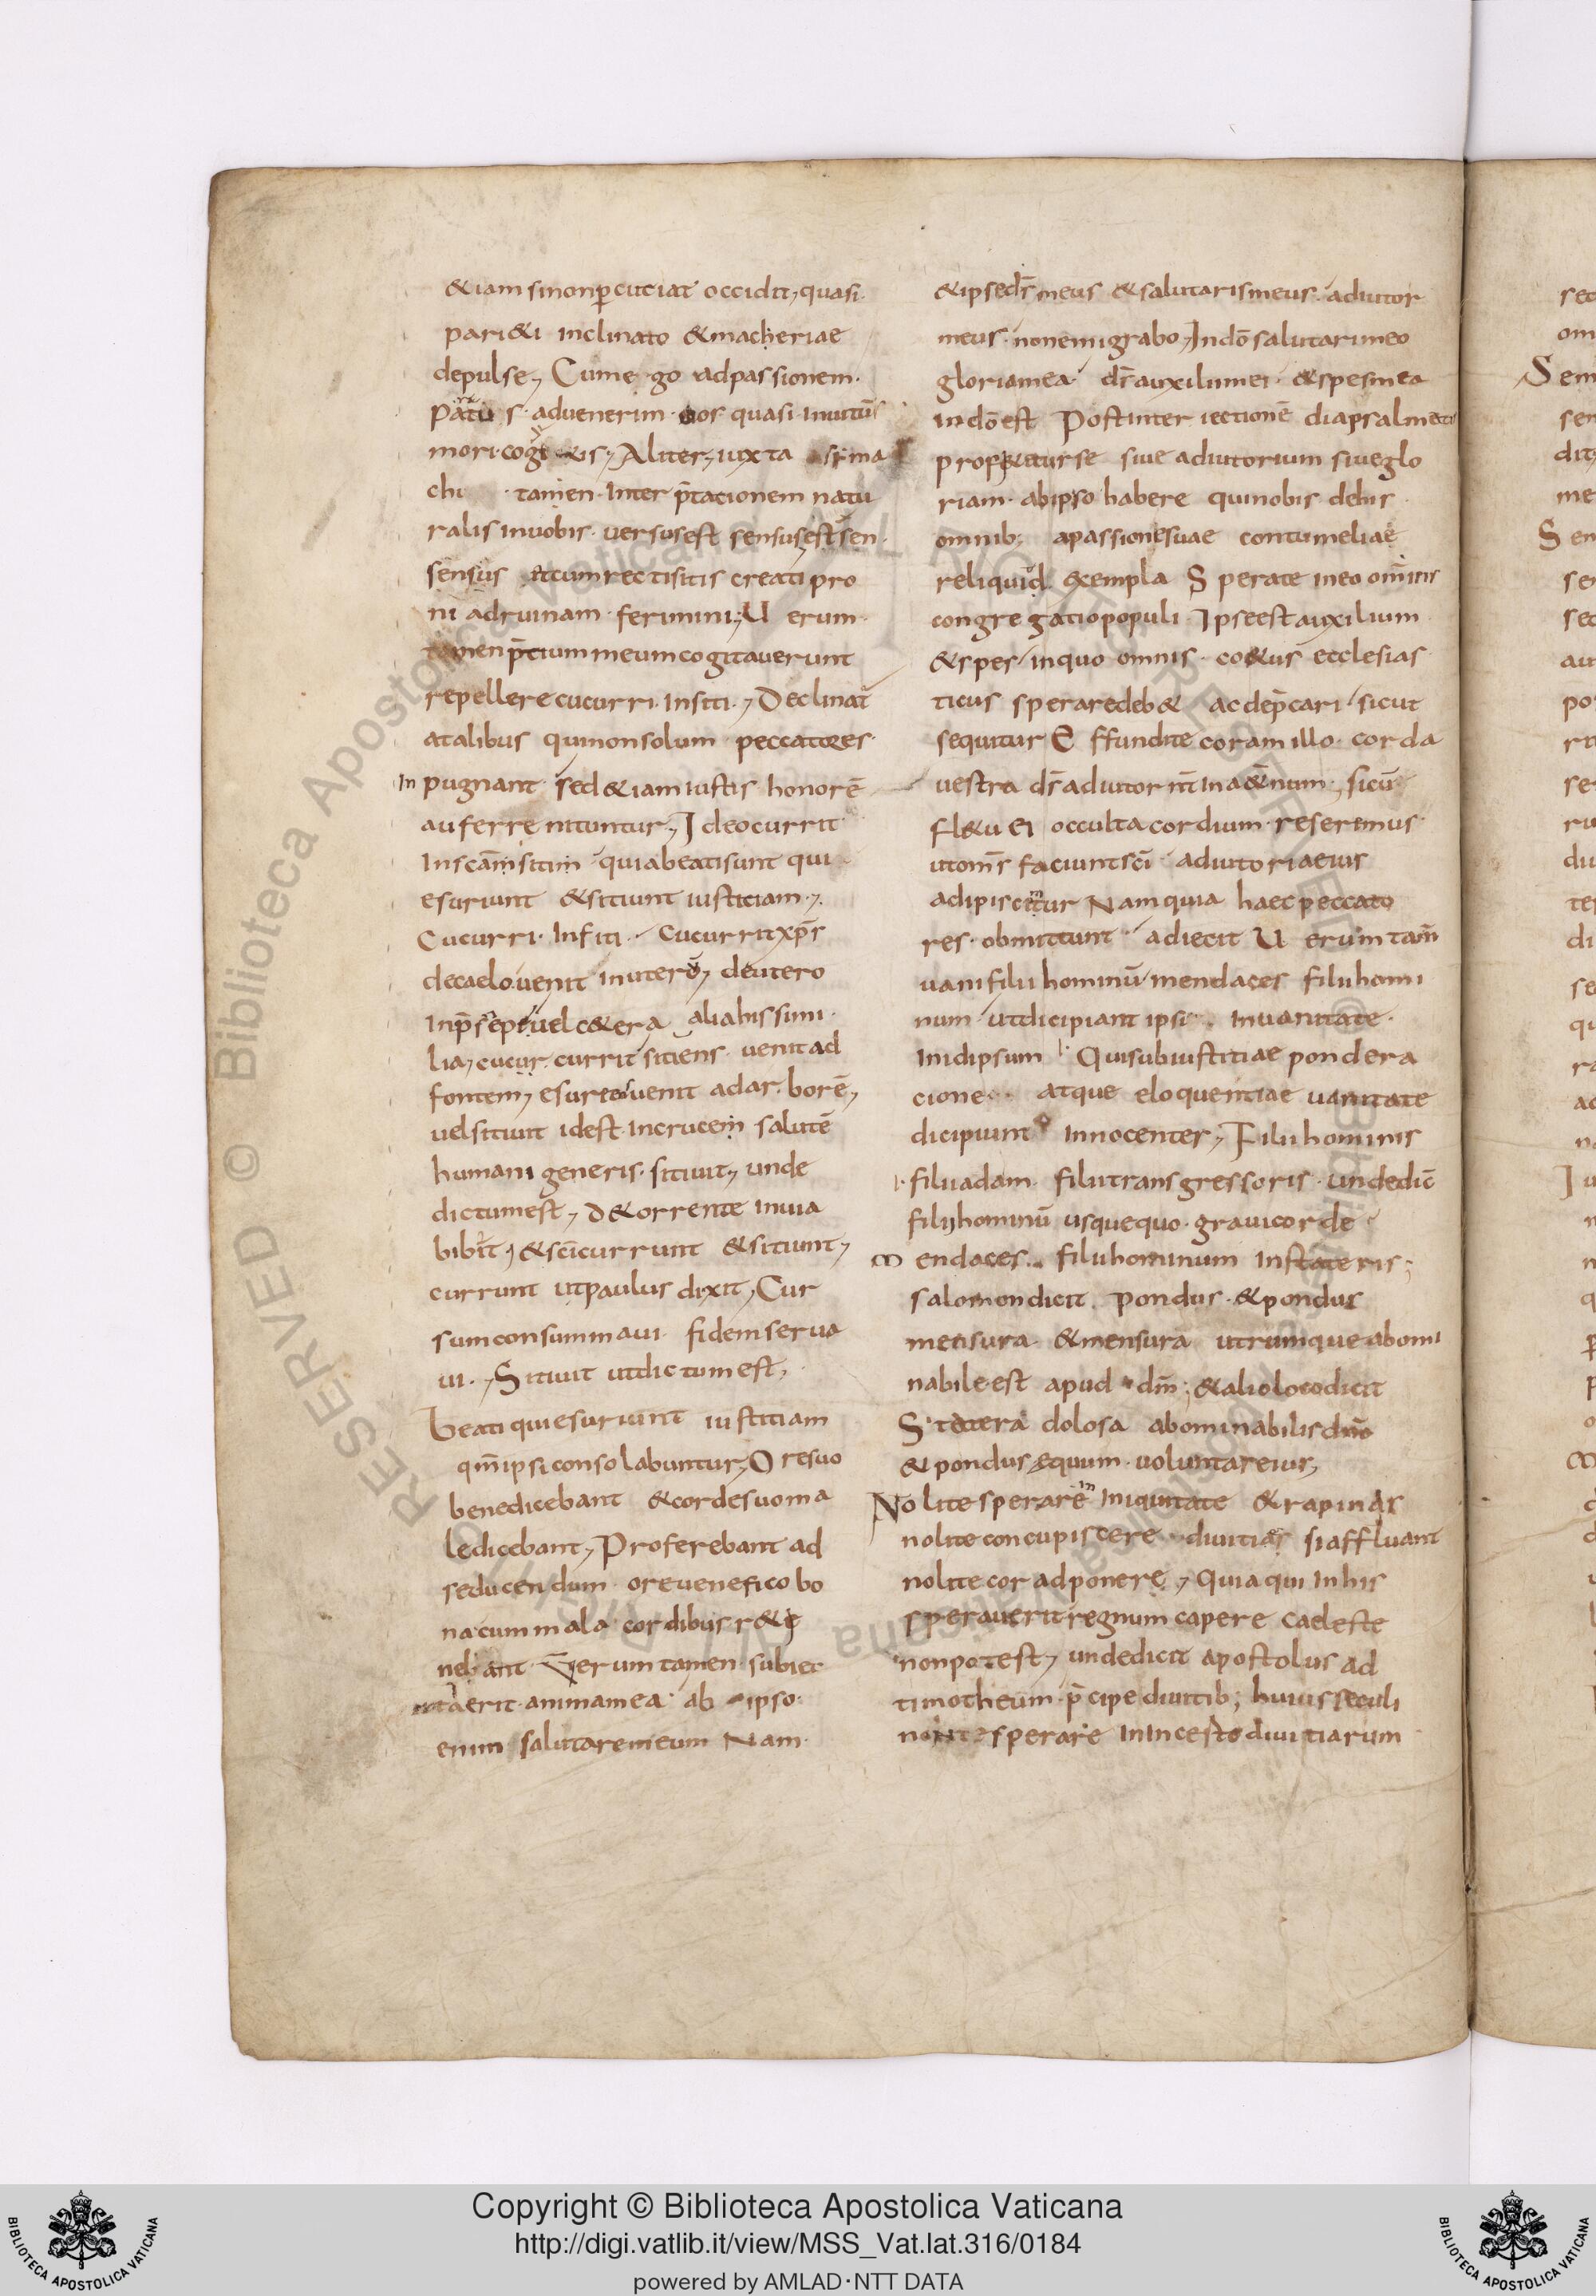 &iam sinonp̄cutiat occidit, quasi
pari&i inclinato &macheriae
depulse, Cume go adpassionem
s. advenerim. uos quasi inuitus
mori. Aliter, iuxta sima
chi tamen inter p̄tacionem natu
ralis inuobis versus est sensus est sen
sensus &cum rectisitis creati pro
ni adruinam ferimini; U erum
tamen p̄tium meum cogitaverunt
repellere cucurri insiti, Declinat̄
atalibus quinonsolum peccatores
Inpugnant sed &iam iustis honorē
auferre nituntur, Ideo currit
Inscām sitim quiabeati sunt qui
esuriunt &sitiunt iusticiam,
Cucurri insiti. cucurrit xp̄s
decaelo venit inuterū, deutero
Inp̄sepe vel c&era alia hissimi
lia, cucur currit sitiens venit ad
fontem, esuriens venit adar borē,
vel sitiuit idest incrucem salutē
humani generis. sitiuit, unde
dictumest, D&orrente inuia
bibit, &sc̄i currunt &sitiunt,
currunt ut paulus dixit, Cur
sum consummaui fidem serua
ui. , Sitiuit utdictum est,
Beati quiesuriunt iustitiam
qm̄ ipsi consolabuntur, Oresuo
benedicebant &cordesuoma
ledicebant, Proferebant ad
seducendum ore venefico bo
na cum mala cordibus r&e
neb ant Verum tamen subiec
taerit animamea ab ipso
enim salutaremeum Nam
&ipseds̄ meus &salutarismeus adiutor
meus. nonemigrabo, Indō salutarimeo
gloriamea ds̄ auxiliimei &spesmea
indō est Postinter iectionē diapsalmatis
siue adiutorium siueglo
riam. abipso habere quinobis dehis
omnib; apassionesuae contumeliae
reliquid exempla Sperate ineo om̄nis
congregatio populi Ipse est auxilium
&spes inquo omnis co&us ecclesias
ticus speraredeb& ac dep̄cari sicut
sequitur Effundite coram illo corda
vestra ds̄ adiutor nr̄ ina&̄rnum, sicū
fl&u ei occulta cordium reseremus
utom̄s faciunt sc̄i adiutoriaeius
adipiscntur Namquia haec peccato
res. obmittunt adiecit U erum tam̄
uani filii hominū mendaces filii homi
num utdicipiant ipsi inuanitate
inidipsum Quisubiustitiae pondera
cione atque eloquentiae vanitate
dicipiunt innocenter, Filii hominis
filii adam filii transgressoris undedic̄
filii hominū usquequo graui corde
mendaces filii hominum instateris;
salomon dicit pondus &pondus
mensura &mensura utrumque abomi
nabile est apud dm̄; &alioloco dicit
Statera dolosa abominabilis
&pondus equum. voluntas eius,
Nolite sperare in iniquitate &rapinas
nolite concupiscere diuitias si affluant
nolite cor adponere, quia qui inhis
sperauerit regnum capere caeleste
nonpotest, undedicit apostolus ad
timotheum p̄cipe diuitib; huius seculi
non sperare inincesto diuitiarum
Copyright © Biblioteca Apostolica Vaticana
http://digi.vatlib.it/view/MSS_Vat.lat.316/0184
powered by AMLAD·NTT DATA